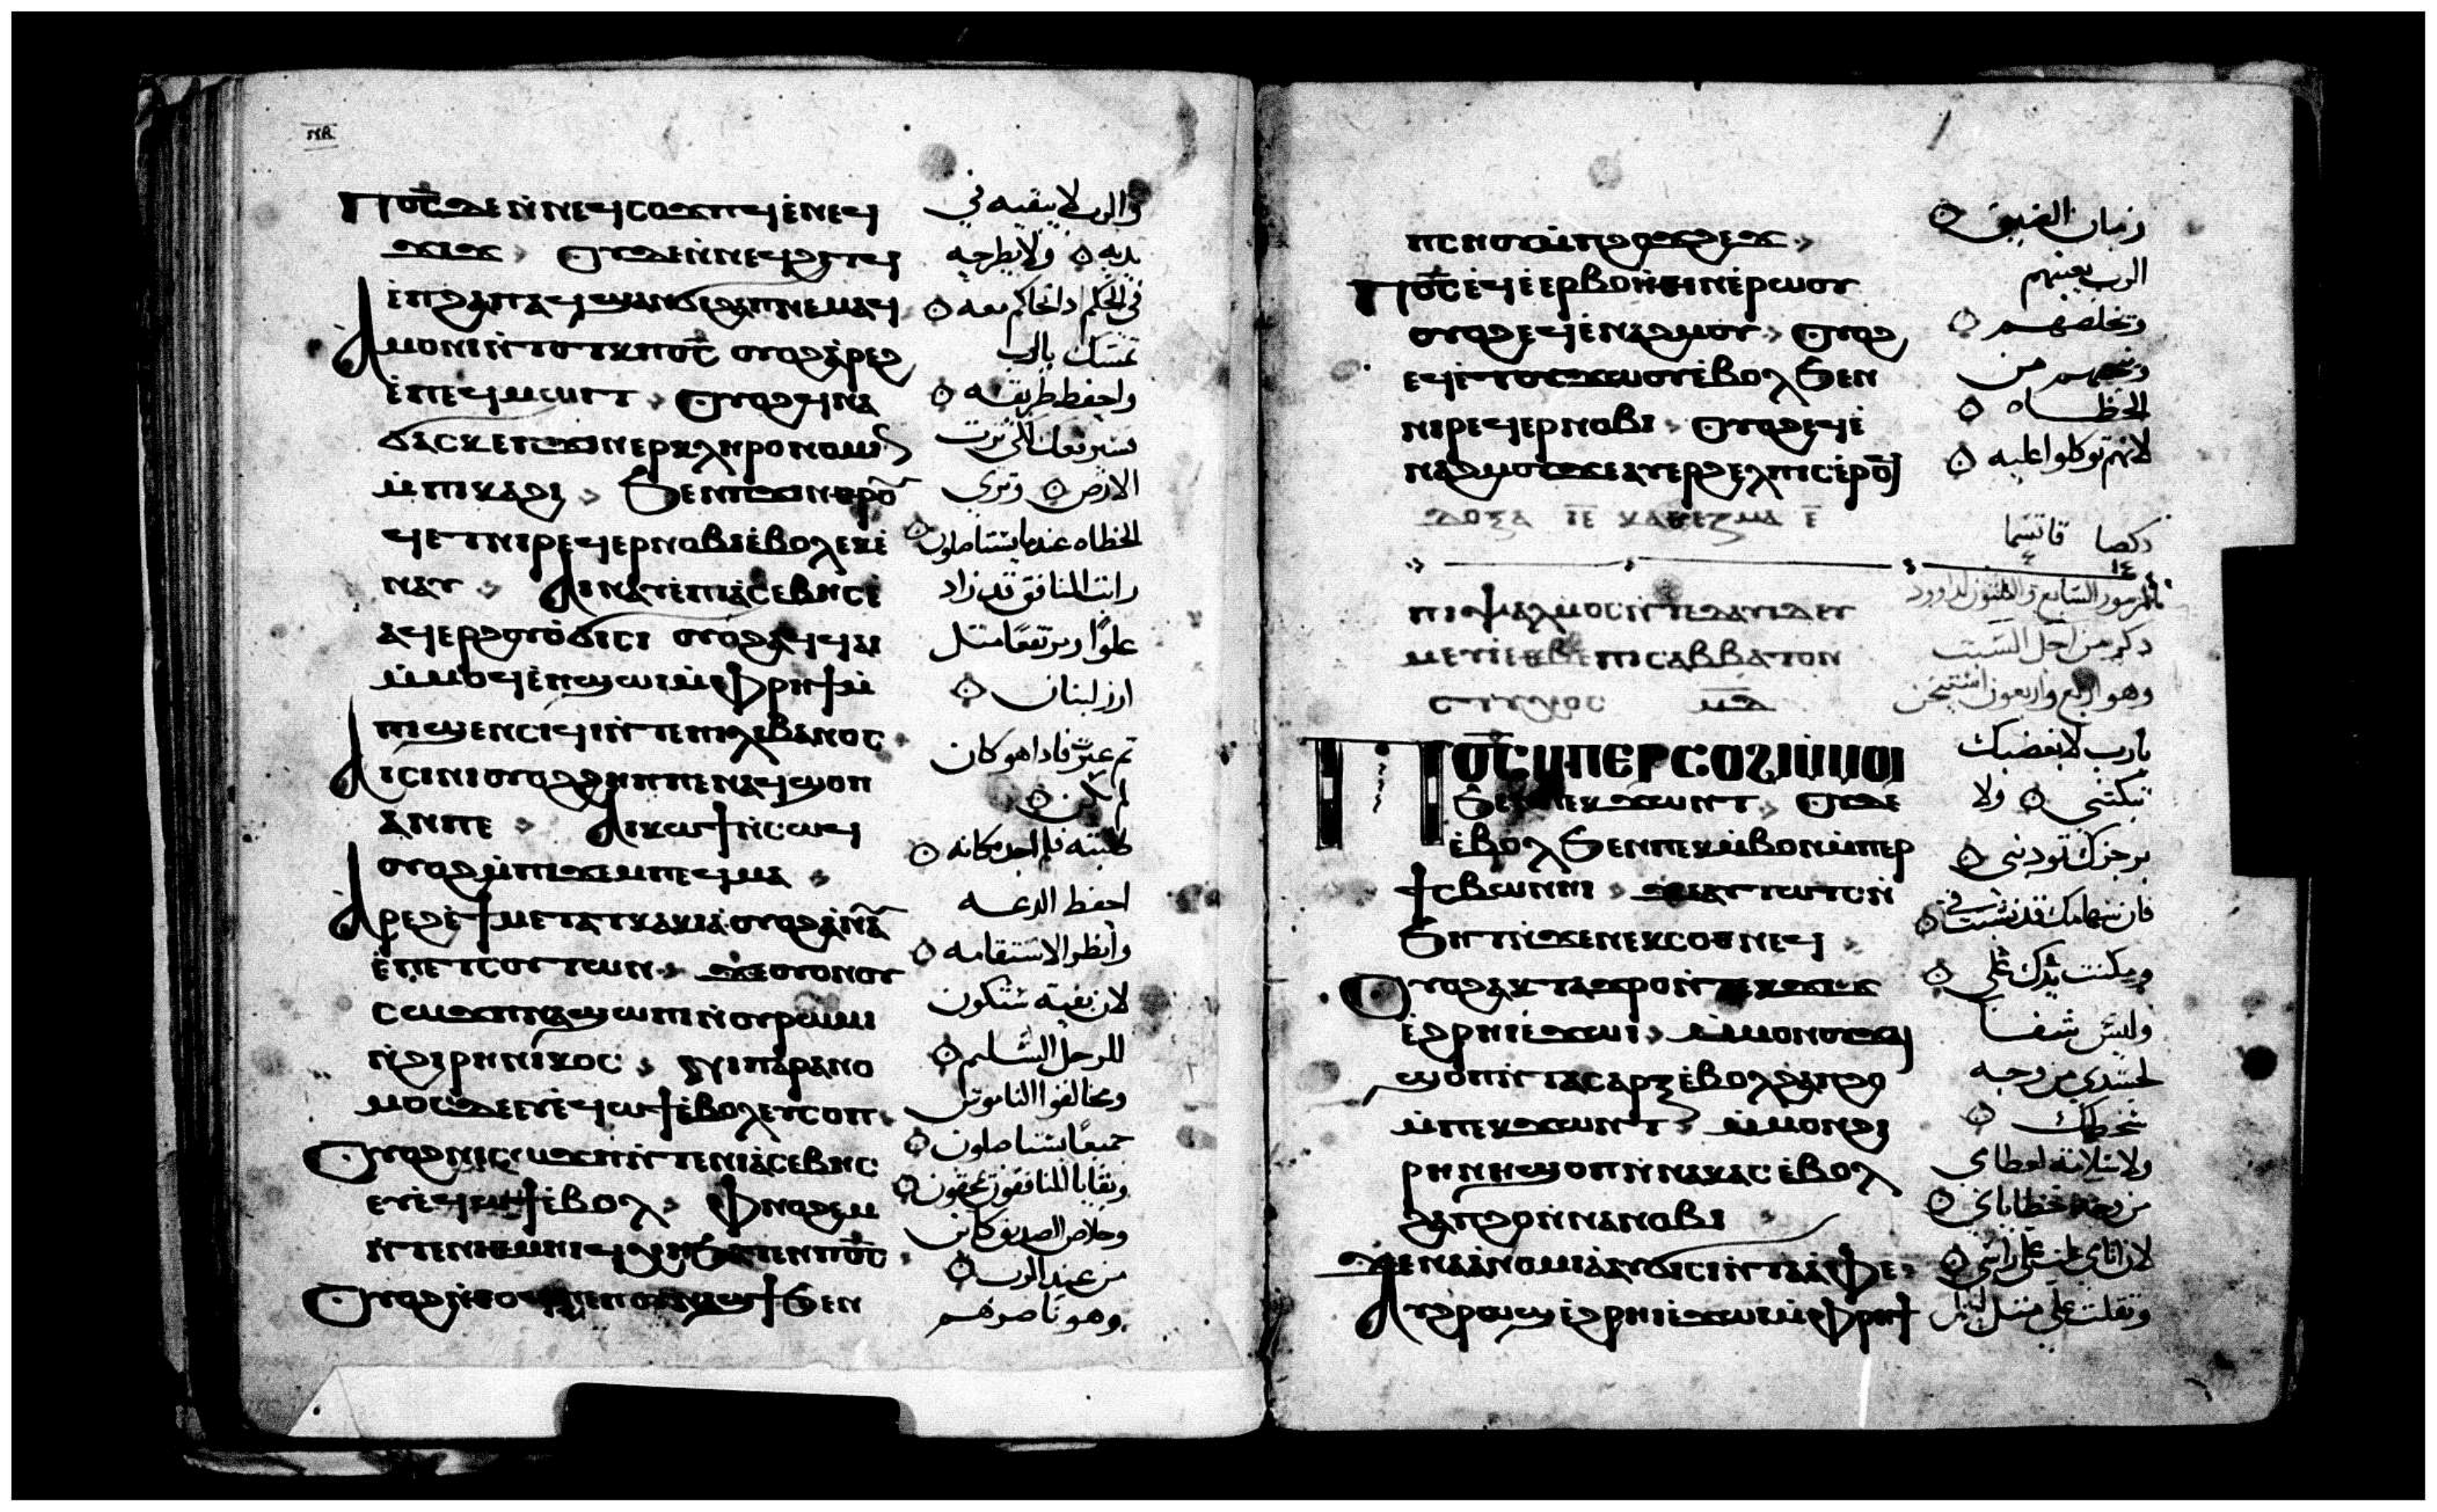 Ⲡⲟ̅ⲥ̅ ⲇⲉ ⲛ̀ⲛⲉϥⲥⲟϫⲡϥ ⲉ̀ⲛⲉϥ
ϫⲓϫ ⲟⲩⲇⲉ ⲛ̀ⲛⲉϥϩⲓⲧϥ
ⲉ̀ⲡϩⲁⲡ ⲁϥϣⲁⲛϭⲓϩⲁⲡ ⲛⲉⲙⲁϥ
Ⲁⲙⲟⲛⲓ ⲛ̀ⲧⲟⲧϥ ⲙ̀ⲡⲟ̅ⲥ̅ ⲟⲩⲟϩ ⲁ̀ⲣⲉϩ
ⲉ̀ⲡⲉϥⲙⲱⲓⲧ ⲟⲩⲟϩ ϥⲛⲁ
ϭⲁⲥⲕ ⲉⲡϫⲓⲛⲉⲣⲕⲗⲏⲣⲟⲛⲟⲙⲓⲛ
ⲙ̀ⲡⲕⲁϩⲓ ϧⲉⲛ ⲡϫⲓⲛⲑⲣⲟⲩ
ϥⲉⲧ ⲛⲓⲣⲉϥⲉⲣⲛⲟⲃⲓ ⲉ̀ⲃⲟⲗ ⲉⲕⲉ̀
ⲛⲁⲩ ⲁⲓⲛⲁⲩ ⲉ̀ⲡⲓⲁ̀ⲥⲉⲃⲏⲥ ⲉ̀
ⲁϥⲉⲣϩⲟⲩⲟ̀ϭⲓⲥⲓ ⲟⲩⲟϩ ⲁϥϥⲁⲓ
ⲙ̀ⲙⲟϥ ⲉ̀ⲡϣⲱⲓ ⲙ̀ⲫⲣⲏϯ ⲛ̀
ⲛⲓϣⲉⲛⲥⲓϥⲓ ⲛ̀ⲧⲉ ⲡⲓⲗⲓⲃⲁⲛⲟⲥ
Ⲁⲓⲥⲓⲛⲓ ⲟⲩⲟϩ ϩⲏⲡⲡⲉ ⲛⲁϥϣⲟⲡ
ⲁⲛ ⲡⲉ ⲁⲓⲕⲱϯ ⲛ̀ⲥⲱϥ
ⲟⲩⲟϩ ⲙ̀ⲡⲓϫⲉⲙ ⲡⲉϥⲙⲁ
Ⲁⲣⲉϩ ⲉ̀ϯⲙⲉⲧⲁⲧⲕⲁⲕⲓⲁ ⲟⲩⲟϩ ⲁ̀ⲛⲁⲩ
ⲉ̀ⲡⲉⲧⲥⲟⲩⲧⲱⲛ ϫⲉ ⲟⲩⲟⲛ ⲟⲩ
ⲥⲱϫⲡ ⲛⲁϣⲱⲡⲓ ⲛ̀ⲟⲩⲣⲱⲙⲓ
ⲛ̀ϩⲓⲣⲏⲛⲓⲕⲟⲥ ⲛⲓⲡⲁⲣⲁⲛⲟ
ⲙⲟⲥ ⲇⲉ ⲉⲩⲉ̀ϥⲱϯ ⲉ̀ⲃⲟⲗ ⲉⲩⲥⲟⲡ
Ⲟⲩⲟϩ ⲛⲓⲥⲱϫⲡ ⲛ̀ⲧⲉ ⲛⲓⲁ̀ⲥⲉⲃⲏⲥ
ⲉⲩⲉ̀ϥⲱϯ ⲉ̀ⲃⲟⲗ ⲫⲛⲟϩⲉⲙ
ⲛ̀ⲧⲉ ⲛⲓⲑⲙⲏⲓ ⲁϥϧⲁⲧⲉⲛ ⲡⲟ̅ⲥ̅
Ⲟⲩⲟϩ ⲛ̀ⲑⲟϥ ⲡⲉ ⲛⲟⲩⲛⲁϣϯ ϧⲉⲛ
والرب لا يبقيه في
يديه ولا يطرحه
في الحكم اذا حاكم معه
تمسك بالرب
واحفظ طريقه
فسيرفعك لكي ترت
الارض وتري
الخطاه عندما يستاصلون
رايت المنافق قد زاد
علوًا ويرتفع مثل
ارز لبنان
ثم عبرت فاذا هو كان
لم يكن
طلبته فلم اجد مكانه
احفظ الدعه
وانظر الاستقامه
لان بقيه ستكون
للرجل السليم
ومخالفوا الناموس
جميعًا يستاصلون
وبقايا المنافقون يمحقون
وخلاص الصديق كاين
من عند الرب
وهو ناصرهم
ⲡⲥⲏⲟⲩ ⲙ̀ⲡϩⲟϫϩⲉϫ
Ⲡⲟ̅ⲥ̅ ⲉϥⲉ̀ⲉⲣⲃⲟⲏ̀ⲑⲓⲛ ⲉ̀ⲣⲱⲟⲩ
ⲟⲩⲟϩ ⲉϥⲉ̀ⲛⲁϩⲙⲟⲩ ⲟⲩⲟϩ
ⲉϥⲉ̀ⲧⲟⲩϫⲱⲟⲩ ⲉ̀ⲃⲟⲗ ϧⲉⲛ
ⲛⲓⲣⲉϥⲉⲣⲛⲟⲃⲓ ⲟⲩⲟϩ ⲉϥⲉ̀
ⲛⲁϩⲙⲟⲩ ϫⲉ ⲁⲩⲉⲣϩⲉⲗⲡⲓⲥ ⲉ̀ⲣⲟϥ
ⲇⲟⲝⲁ ⲓ̅ⲉ̅ ⲕⲁⲑⲓⲥⲙⲁ ⲉ̅
ⲡⲓⲯⲁⲗⲙⲟⲥ ⲛ̀ⲧⲉ ⲇⲁⲩⲓⲇ ⲉⲩ
ⲙⲉⲩⲓ ⲉⲑⲃⲉ ⲡⲓⲥⲁⲃⲃⲁⲧⲟⲛ
ⲥⲧⲩⲭⲟⲥ ⲙ̅ⲇ̅
Ⲡⲟ̅ⲥ̅ ⲙⲡⲉⲣⲥⲟϩⲓ ⲙ̀ⲙⲟⲓ
ϧⲉⲛ ⲡⲉⲕϫⲱⲛⲧ ⲟⲩⲇⲉ
ⲉ̀ⲃⲟⲗ ϧⲉⲛ ⲡⲉⲕⲙ̀ⲃⲟⲛ ⲙ̀ⲡⲉⲣ
ϯⲥⲃⲱ ⲛⲏⲓ ϫⲉ ⲁⲩⲧⲱⲧⲥ ⲛ̀
ϧⲏⲧ ⲛ̀ϫⲉ ⲛⲉⲕⲥⲟⲑⲛⲉϥ
Ⲟⲩⲟϩ ⲁⲕⲧⲁϫⲣⲟ ⲛ̀ⲧⲉⲕϫⲓϫ
ⲉ̀ϩⲣⲏⲓ ⲉ̀ϫⲱⲓ ⲙ̀ⲙⲟⲛ ⲟⲩϫⲁⲓ
ϣⲟⲡ ⲛ̀ⲧⲁⲥⲁⲣⲝ ⲉ̀ⲃⲟⲗ ϩⲁ ⲡϩⲟ
ⲙ̀ⲡⲉⲕϫⲱⲛⲧ ⲙ̀ⲙⲟⲛ ϩⲓ
ⲣⲏⲛⲏ ϣⲟⲡ ⲛ̀ⲛⲁⲕⲁⲥ ⲉ̀ⲃⲟⲗ
ϩⲁ ⲡϩⲟ ⲛ̀ⲛⲁⲛⲟⲃⲓ
ϫⲉ ⲛⲁⲁ̀ⲛⲟⲙⲓⲁ̀ ⲁⲩϭⲓⲥⲓ ⲛ̀ⲧⲁⲁ̀ⲫⲉ
Ⲁⲩϩⲣⲟϣ ⲉ̀ϩⲣⲏⲓ ⲉ̀ϫⲱⲓ ⲙ̀ⲫⲣⲏϯ
زمان الضيق
الرب يعينهم
ويخلصهم
وينجيهم من
الخطاه
لانهم توكلوا عليه
ذكصا قاتسما
المزمور السابع والثلثون لداوود
ذكر من اجل السبت
وهو اربع واربعون استيخن
يا رب لا بغضبك
تبكتني ولا
برجزك تودبني
فان سهامك قد نشبت في
ومكنت يدك علي
وليس شفا
لجسدي من وجه
سخطك
ولا سلامة لعظامي
من وجه خطاياي
لان اثامي علت علي راسي
وثقلت علي مثل